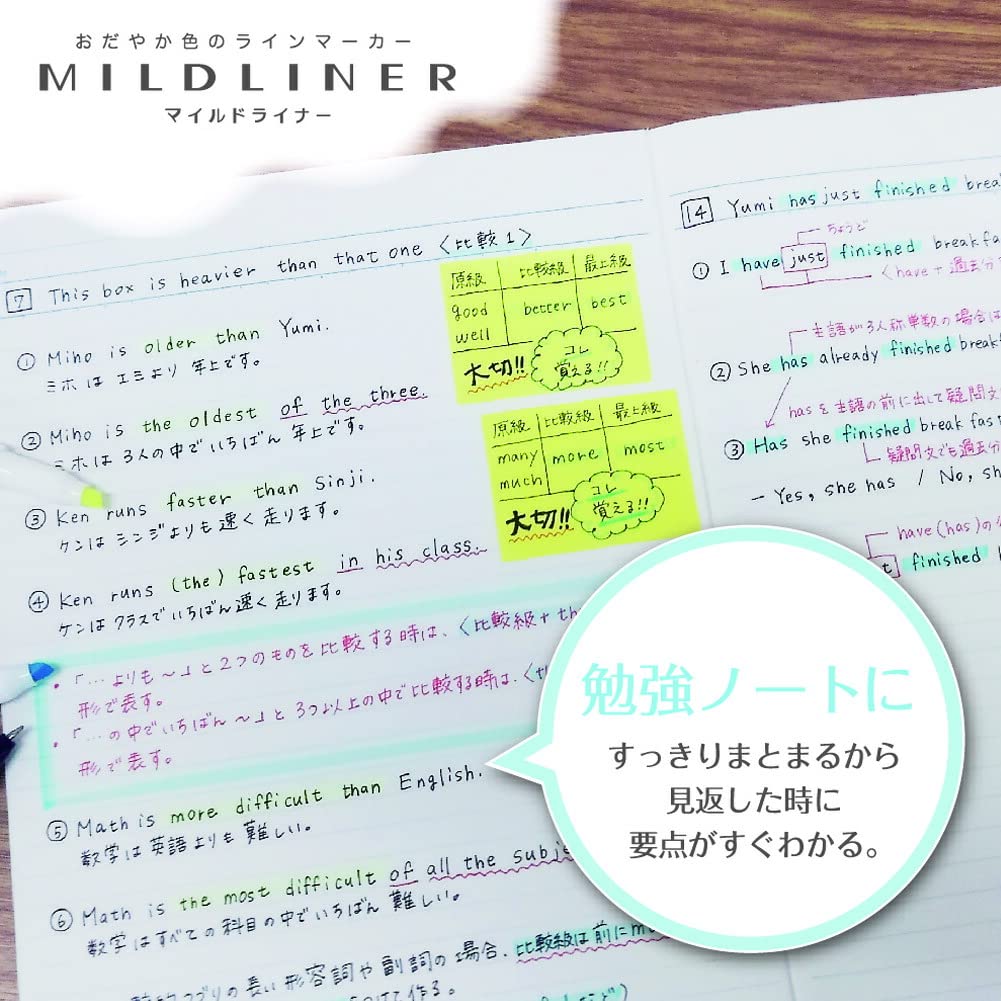 おだやか色のラインマーカー
MILDLINER
マイルドライナー
7 This box is heavier than that one 〈比較1〉
① Miho is older than Yumi.
ミホは エミより 年上です。
② Miho is the oldest of the three.
ミホは 3人の中でいちばん 年上です。
③ Ken runs faster than Sinji.
ケンは シンジよりも速く走ります。
④ Ken runs (the) fastest in his class.
ケンは クラスでいちばん速く走ります。
・「…よりも〜」と2つのものを比較する時は、〈比較級+th
形で表す。
・「…の中でいちばん〜」と3つ以上の中で比較する時は、〈th
形で表す。
⑤ Math is more difficult than English.
数学は英語よりも難しい。
⑥ Math is the most difficult of all the subje
数学はすべての科目の中でいちばん難しい。
の長い形容詞や副詞の場合、比較級は前にmo
つけて作る。
原級 比較級 最上級
good better best
well
大切!! コレ
覚える!!
原級 比較級 最上級
many more most
much
大切!! コレ
覚える!!
14 Yumi has just finished brea
ちょうど
① I have just finished breakfa
〈have+過去分
主語が3人称単数の場合は
② She has already finished breakf
hasを主語の前に出して疑問文
③ Has she finished breakfast
疑問文でも過去分
– Yes, she has / No, sh
have(has)の
t finished b
勉強ノートに
すっきりまとまるから
見返した時に
要点がすぐわかる。